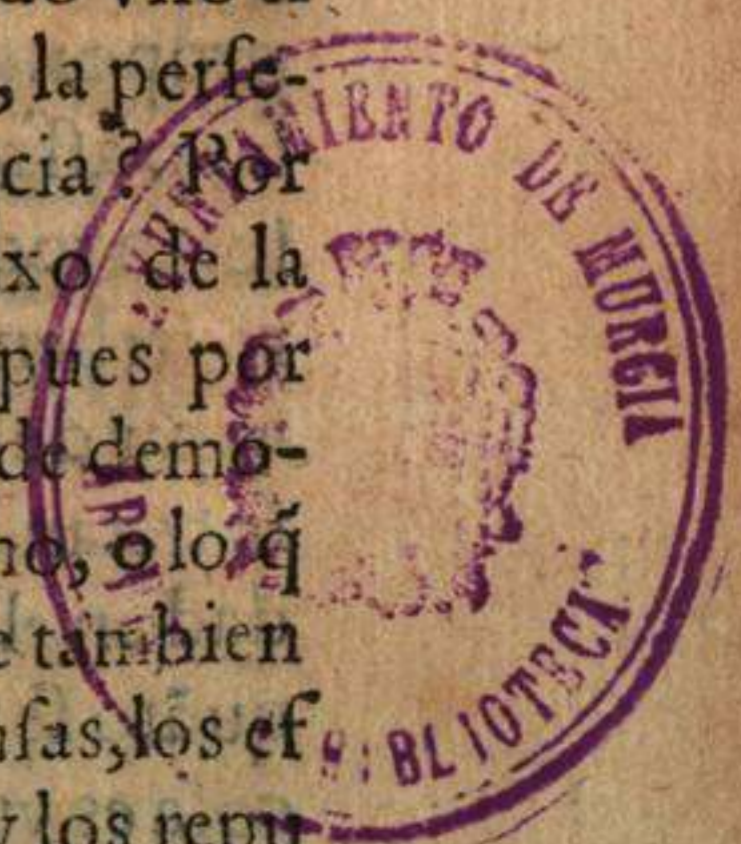 , la perſe-
cia? Por
xo de la
pues por
de demo-
no, o lo q̃
e tambien
uſas, los eſ
y los repu
AYUNTAMIENTO DE MURCIA
BIBLIOTECA